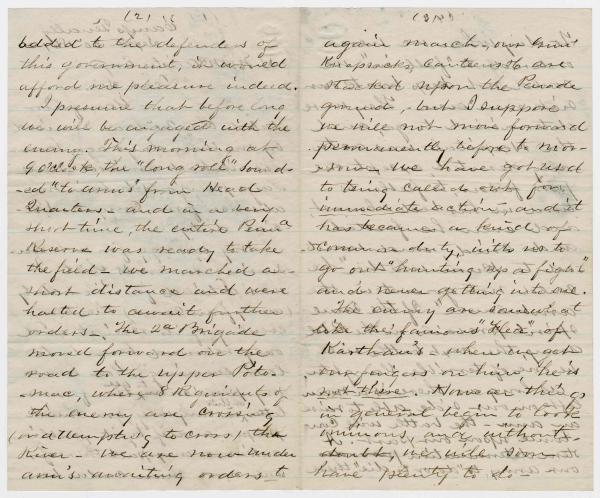 (2)
added to the defenders of
this government, it would
afford me pleasure indeed.
I presume that before long
we will be engaged with the
enemy. This morning at
9 O'Clk the "long roll" sound-
-ed "to arms" from Head
Quarters - and in a very
short time, the entire Penna
Reserve was ready to take
the field - we marched a
short distance and were
halted to await further
orders - The 2d Brigade
moved forward on the
road to the upper Poto-
-mac, where 8 Regiments of
the enemy are crossing
(or attempting to cross) the
River - We are now under
arms awaiting orders to
(3)
again march, our Guns
Knapsacks, Canteens &c are
stacked upon the Parade
ground, but I suppose
we will not move forward
permanently before to mor-
-row - we have got used
to being called out for
immediate action, and it
has became a kind of
common duty, with us to
go out "hunting up a fight"
and never getting into one.
"The enemy" are somewhat
like the famous "Flea", of
Karthau's - when we get
our fingers on him he is
not there. However things
in general begin to look
ominous and without
doubt, we will soon
have plenty to do -